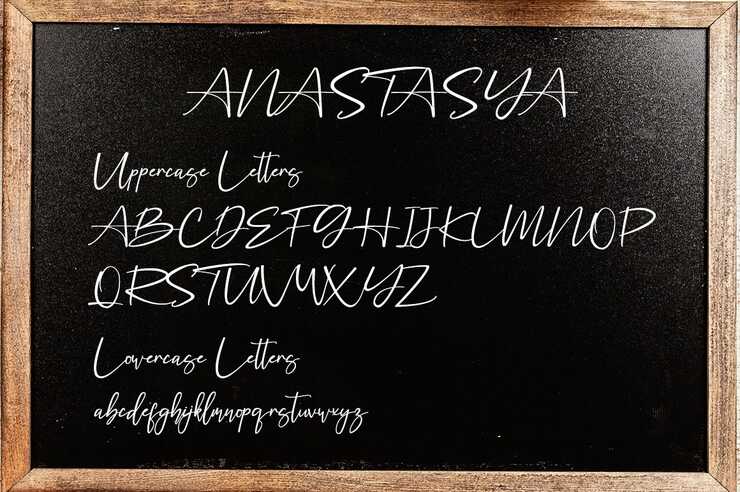 ANASTASYA
Uppercase Letters
ABCDEFGHIJKLMNOP
QRSTUVWXYZ
Lowercase Letters
abcdefghijklmnopqrstuvwxyz